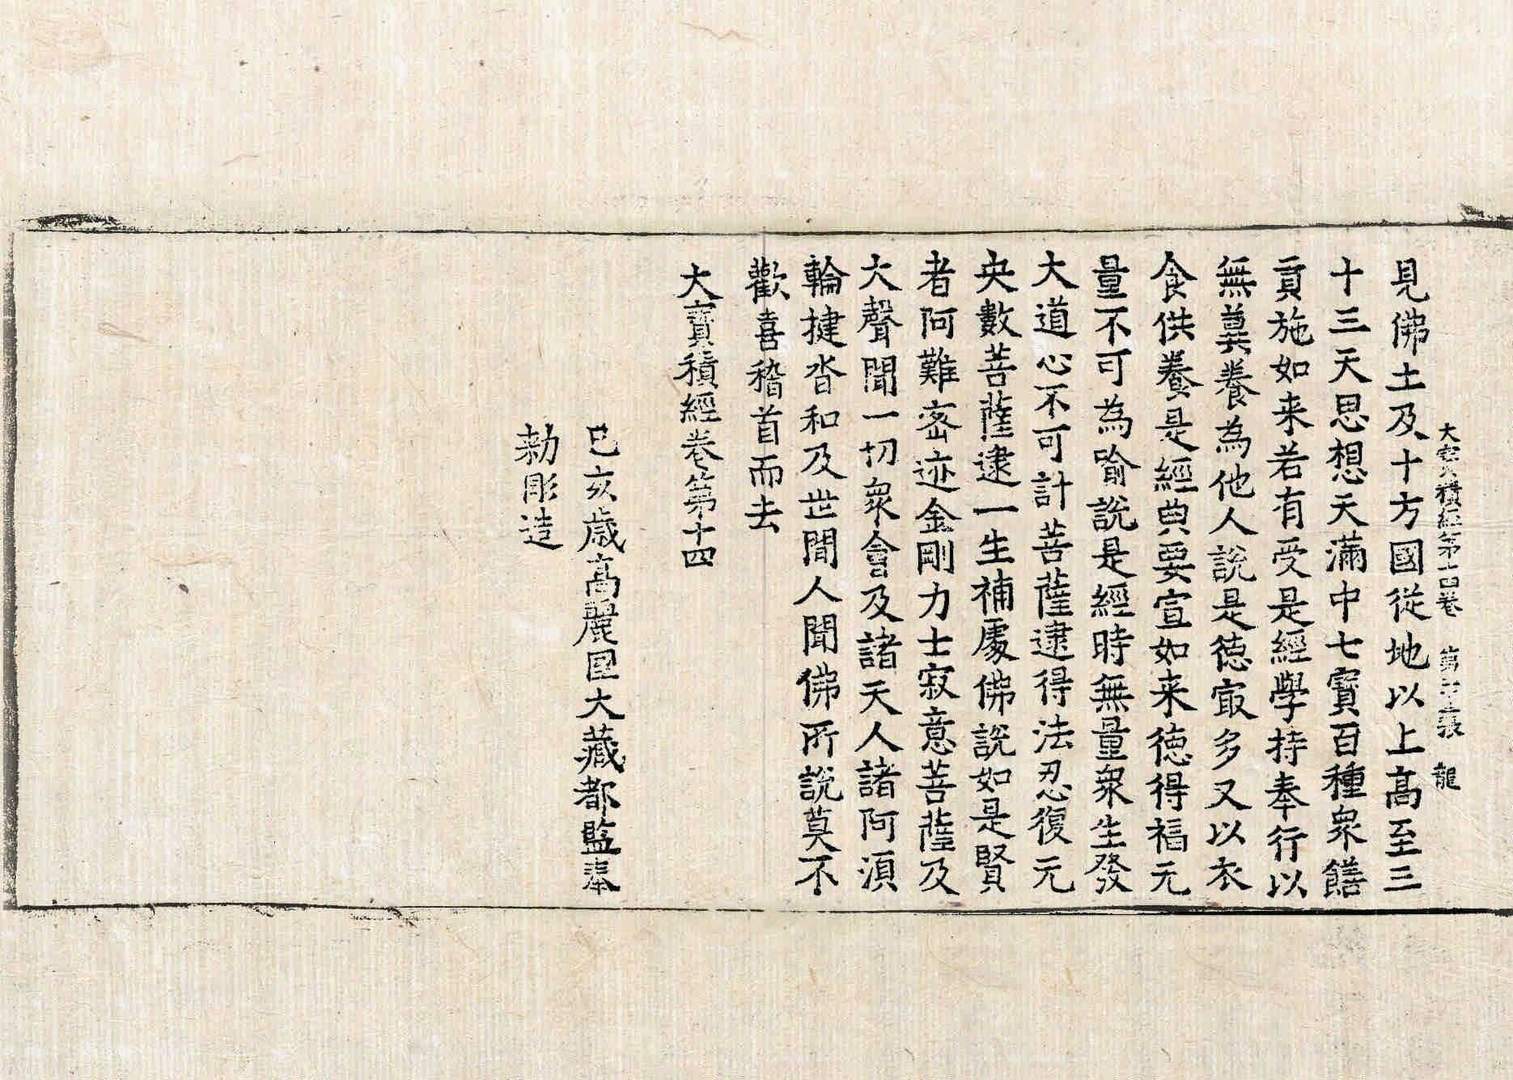 大寶積經第十四卷 第二十三張 龍
見佛土及十方國從地以上高至三
十三天思想天滿中七寶百種衆饍
貢施如来若有受是經學持奉行以
無冀養為他人說是徳㝡多又以衣
食供養是經典要宣如来徳得福无
量不可為喻說是經時無量衆生發
大道心不可計菩薩逮得法忍復无
央數菩薩逮一生補處佛說如是賢
者阿難密迹金剛力士寂意菩薩及
大聲聞一切衆會及諸天人諸阿須
輪揵沓和及世間人聞佛所說莫不
歡喜稽首而去
大寶積經卷第十四
己亥歲高麗国大藏都監奉
勅彫造